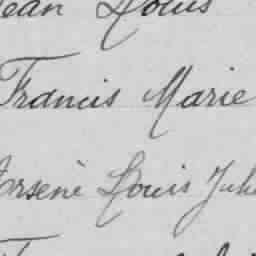 Jean Louis
Francis Marie
Arsenè Louis Jules